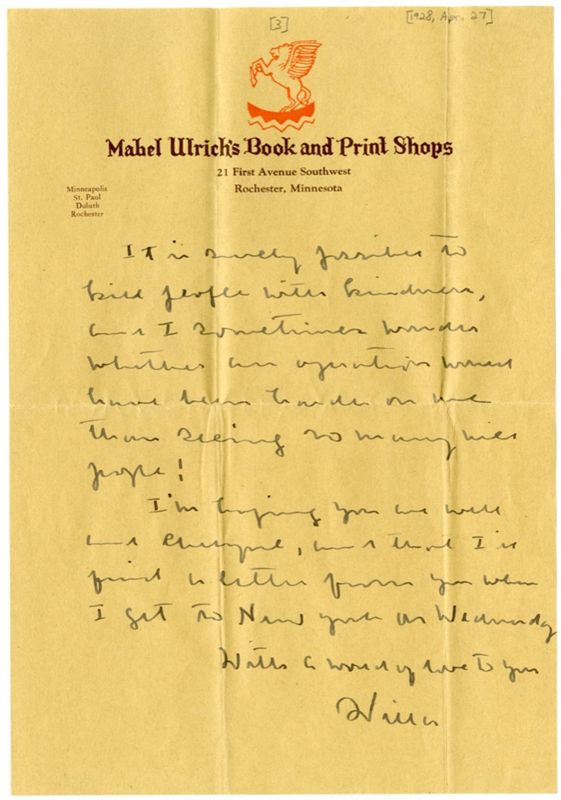 [3]
[1928, Apr. 27]
Mabel Ulrich's Book and Print Shops
21 First Avenue Southwest
Rochester, Minnesota
Minneapolis
St. Paul
Duluth
Rochester
It is surely possible to
kill people with kindness,
and I sometimes wonder
whether an operation would
have been harder on me
than seeing so many nice
people!
I'm hoping you are well
and cheerful, and that I'll
find a letter from you when
I get to New York on Wednesday
With a world of love to you
Willa